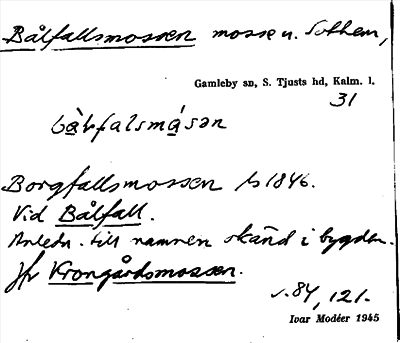 Bålfallsmossen mosse n. Solhem,
Gamleby sn, S. Tjusts hd, Kalm. l.
31
bàlfalsmásən
Borgfallsmossen ls 1846.
Vid Bålfall.
Anledn. till namnen okänd i bygden.
Jfr Krongårdsmossen.
s. 84, 121.
Ivar Modéer 1945